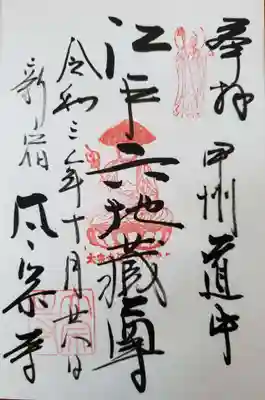 奉拝 甲州道中
江戸六地蔵尊
令和三年十月廿八日
新宿 太宗寺